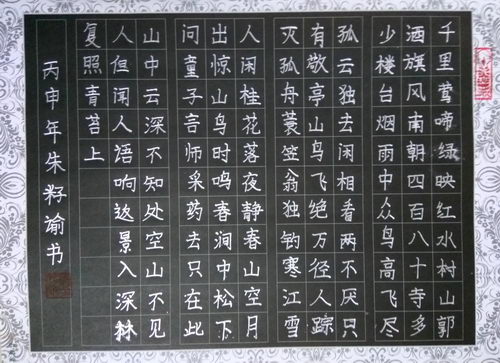 千里莺啼绿映红水村山郭
酒旗风南朝四百八十寺多
少楼台烟雨中众鸟高飞尽
孤云独去闲相看两不厌只
有敬亭山鸟飞绝万径人踪
灭孤舟蓑笠翁独钓寒江雪
人闲桂花落夜静春山空月
出惊山鸟时鸣春涧中松下
问童子言师采药去只在此
山中云深不知处空山不见
人但闻人语响返景入深林
复照青苔上
丙申年朱籽谕书